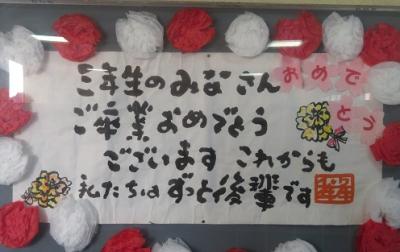 三年生のみなさん
ご卒業おめでとう
ございます これからも
私たちはずっと後輩です
おめで
とう